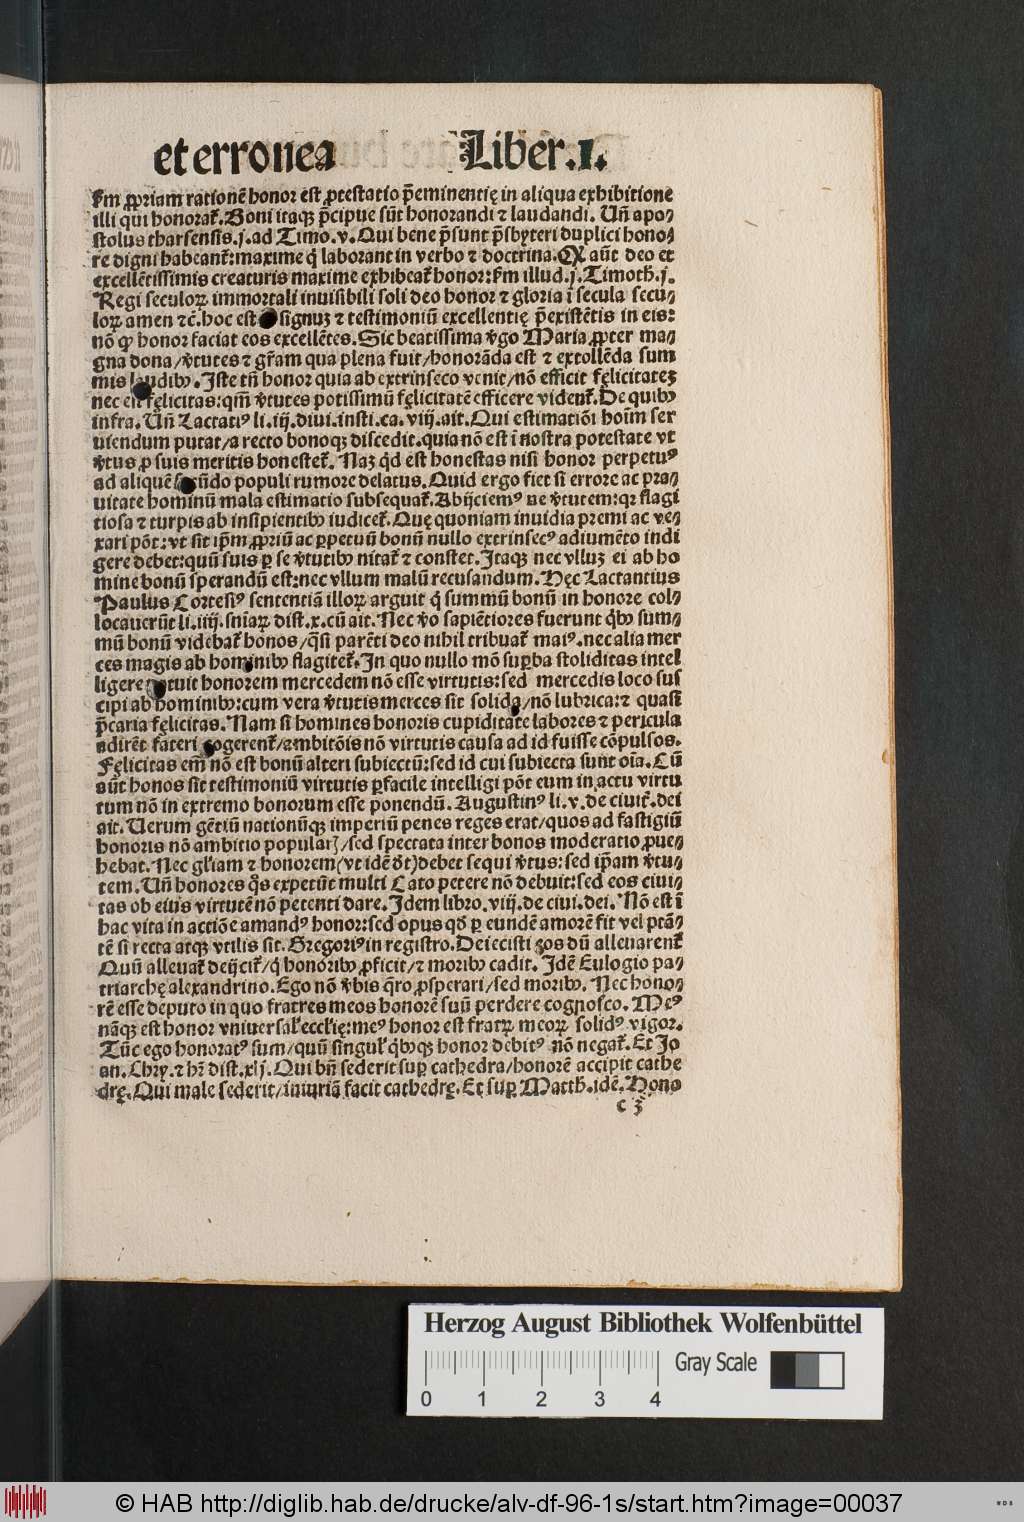 et erronea Liber.1.
ẜm ꝓpriam rationē honor est ꝓtestatio p̄eminentię in aliqua exhibitione
illi qui honorat᷑. Boni itaqꝫ p̄cipue sūt honorandi ⁊ laudandi. Un̄ apo⸗
stolus tharsensis.j.ad Timo.v. Qui bene p̄sunt p̄sbyteri duplici hono⸗
re digni habeant᷑: maxime q̇ laborant in verbo ⁊ doctrina. Qꝛ aūt deo et
excellētissimis creaturis maxime exhibeat᷑ honor: ẜm illud.j.Timoth.j.
Regi seculoꝝ immortali inuisibili soli deo honor ⁊ gloria ī secula secu⸗
loꝝ amen ⁊c̄. hoc est signuꝫ ⁊ testimoniū excellentię p̄existētis in eis:
nō ꝙ honor faciat eos excellētes. Sic beatissima v̓go Maria ꝓpter ma⸗
gna dona/v̓tutes ⁊ gr̄am qua plena fuit/honorāda est ⁊ extollēda sum
mis laudibꝰ. Iste tn̄ honor quia ab extrinseco venit/nō efficit fęlicitateꝫ
nec est fęlicitas: qm̄ v̓tutes potissimū fęlicitatē efficere vident᷑. De quibꝰ
infra. Un̄ Lactatiꝰ li.iij.diui.insti.ca.viij.ait. Qui estimatiōi hoīm ser
uiendum putat/a recto bonoqꝫ discedit. quia nō est ī nostra potestate vt
v̓tus ꝓ suis meritis honestet᷑. Naꝫ qd̓ est honestas nisi honor perpetuꝰ
ad aliquē secūdo populi rumore delatus. Quid ergo fiet si errore ac pra⸗
uitate hominū mala estimatio subsequat᷑. Abijciemꝰ ne v̓tutem: qꝛ flagi
tiosa ⁊ turpis ab insipientibꝰ iudicet᷑. Quę quoniam inuidia premi ac ve⸗
xari pōt: vt sit ip̄m ꝓpriū ac ꝑpetuū bonū nullo extrinsecꝰ adiumēto indi
gere debet: quū suis ꝑ se v̓tutibꝰ nitat᷑ ⁊ constet. Itaqꝫ nec vlluꝫ ei ab ho
mine bonū sperandū est: nec vllum malū recusandum. Hęc Lactantius
Paulus Cortesiꝰ sententiā illoꝝ arguit q̇ summū bonū in honore col⸗
locauerūt li.iiij.sn̄iaꝝ dist.x.cū ait. Nec v̓o sapiētiores fuerunt qḃꝰ sum⸗
mū bonū videbat᷑ honos/q̄si parēti deo nihil tribuat᷑ maiꝰ. nec alia mer
ces magis ab hominibꝰ flagitet᷑. In quo nullo mō suꝑba stoliditas intel
ligere potuit honorem mercedem nō esse virtutis: sed mercedis loco sus
cipi ab hominibꝰ: cum vera v̓tutis merces sit solida/nō lubrica: ⁊ quasi
p̄caria fęlicitas. Nam si homines honoris cupiditate labores ⁊ pericula
adirēt fateri cogerent᷑/ambitōis nō virtutis causa ad id fuisse cōpulsos.
Fęlicitas em̄ nō est bonū alteri subiectū: sed id cui subiecta sunt oīa. Cū
aūt honos sit testimoniū virtutis ꝑfacile intelligi pōt eum in actu virtu
tum nō in extremo bonorum esse ponendū. Augustinꝰ li.v.de ciuit᷑.dei
ait. Uerum gētiū nationūqꝫ imperiū penes reges erat/quos ad fastigiū
honoris nō ambitio popularꝭ/sed spectata inter bonos moderatio ꝓue⸗
hebat. Nec gl̄iam ⁊ honorem (vt idē dr̄t) debet sequi v̓tus: sed ip̄am v̓tu⸗
tem. Un̄ honores q̊s expetūt multi Cato petere nō debuit: sed eos ciui⸗
tas ob eius virtutē nō petenti dare. Idem libro.viij.de ciui.dei. Nō est ī
hac vita in actiōe amandꝰ honor: sed opus qd̓ ꝑ eundē amorē fit vel ptā⸗
tē si recta atqꝫ vtilis sit. Gregoriꝰ in registro. Deiecisti eos dū alleuarent᷑
Quū alleuat᷑ deijcit᷑/q̇ honoribꝰ ꝓficit/⁊ moribꝰ cadit. Idē Eulogio pa⸗
triarchę alexandrino. Ego nō v̓bis q̄ro ꝓsperari/sed moribꝰ. Nec hono⸗
rē esse deputo in quo fratres meos honorē suū perdere cognosco. Meꝰ
nāqꝫ est honor vniuersal̓ eccl̓ię: meꝰ honor est fratꝝ meoꝝ solidꝰ vigor.
Tūc ego honoratꝰ sum/quū singul̓ qḃꝰqꝫ honor debitꝰ nō negat᷑. Et Jo
an. Chrỹ. ⁊ hr̄ dist.xlj. Qui bn̄ sederit suꝑ cathedra/honorē accipit cathe
drę. Qui male sederit/iniuriā facit cathedrę. Et suꝑ Matth.idē. Hono
c 3
Herzog August Bibliothek Wolfenbüttel
Gray Scale
0 1 2 3 4
© HAB http://diglib.hab.de/drucke/alv-df-96-1s/start.htm?image=00037